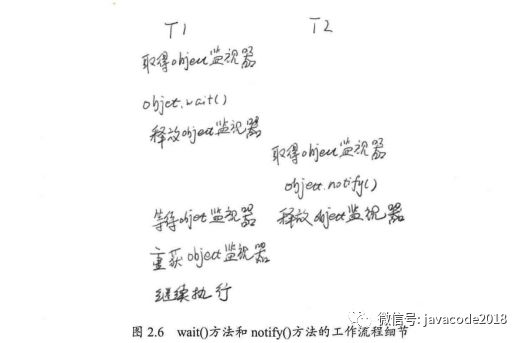 T1 T2
取得object监视器
object.wait()
释放object监视器
取得object监视器
object.notify()
等待object监视器 释放object监视器
重获object监视器
继续执行
图 2.6 wait()方法和notify()方法的工作流程细节
微信号: javacode2018